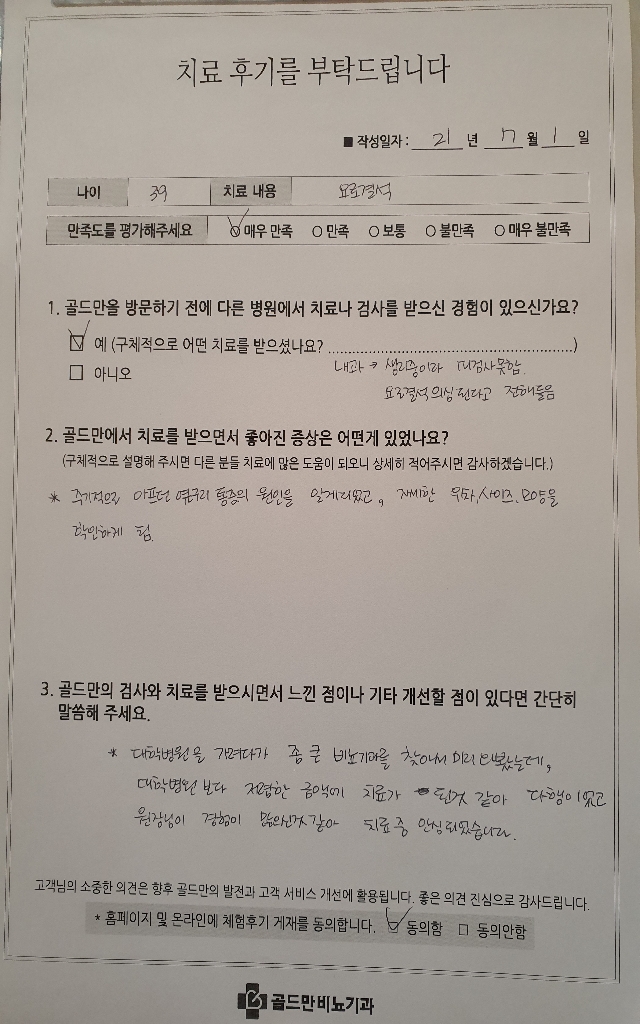 치료 후기를 부탁드립니다
■ 작성일자 : 21 년 7 월 1 일
나이 39 치료 내용 요로결석
만족도를 평가해주세요 매우 만족 만족 보통 불만족 매우 불만족
1. 골드만을 방문하기 전에 다른 병원에서 치료나 검사를 받으신 경험이 있으신가요?
예 (구체적으로 어떤 치료를 받으셨나요? ........................................................)
아니오
내과 → 생리중이라 피검사못함.
요로결석 의심된다고 전해들음
2. 골드만에서 치료를 받으면서 좋아진 증상은 어떤게 있었나요?
(구체적으로 설명해 주시면 다른 분들 치료에 많은 도움이 되오니 상세히 적어주시면 감사하겠습니다.)
* 주기적으로 아프던 옆구리 통증의 원인을 알게되었고, 자세한 위치, 사이즈, 모양을
확인하게 됨.
3. 골드만의 검사와 치료를 받으시면서 느낀 점이나 기타 개선할 점이 있다면 간단히
말씀해 주세요.
* 대학병원을 가려다가 좀 큰 비뇨기과를 찾아서 미리 와봤는데,
대학병원 보다 저렴한 금액에 치료가 된것 같아 다행이었고
원장님이 경험이 많으신것 같아 치료 중 안심되었습니다.
고객님의 소중한 의견은 향후 골드만의 발전과 고객 서비스 개선에 활용됩니다. 좋은 의견 진심으로 감사드립니다.
* 홈페이지 및 온라인에 체험후기 게재를 동의합니다. 동의함 동의안함
골드만비뇨기과